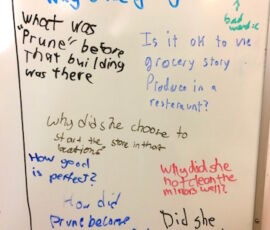 what was
"Prune" before
That building
was there
Is it ok to use
grocery story
Produce in a
restaraunt?
bad
why did she choose to
start the store in that
locations
How good
is perfect?
why did she
not clean the
mirrors well?
How did
Prune become
Did she